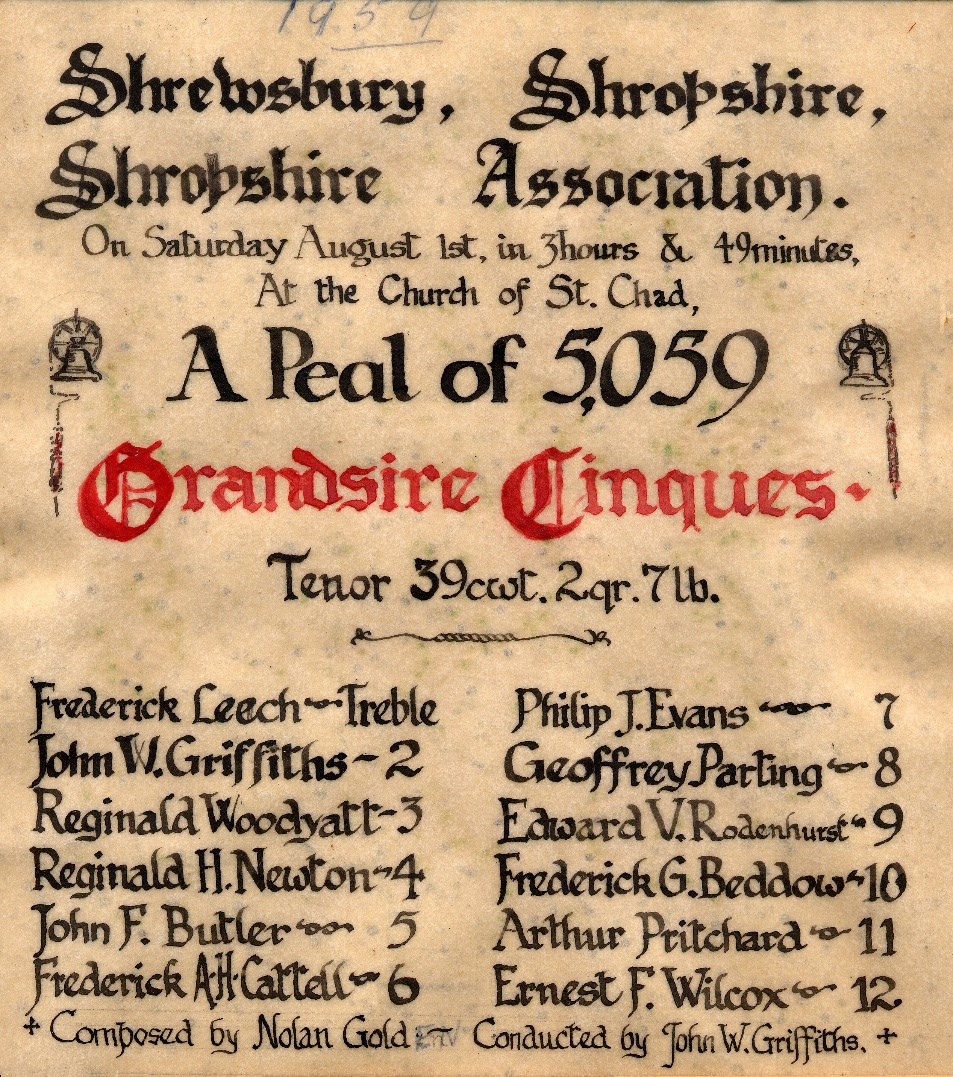 1959
Shrewsbury, Shropshire,
Shropshire Association.
On Saturday August 1st, in 3hours & 49minutes,
At the Church of St. Chad,
A Peal of 5,059
Grandsire Cinques.
Tenor 39cwt. 2qr. 7lb.
Frederick Leech~Treble
John W. Griffiths~2
Reginald Woodyatt~3
Reginald H. Newton~4
John F. Butler~5
Frederick A.H. Cattell~6
Philip J. Evans~7
Geoffrey Parting~8
Edward V. Rodenhurst~9
Frederick G. Beddow~10
Arthur Pritchard~11
Ernest F. Wilcox~12
+ Composed by Nolan Gold ~ Conducted by John W. Griffiths. +